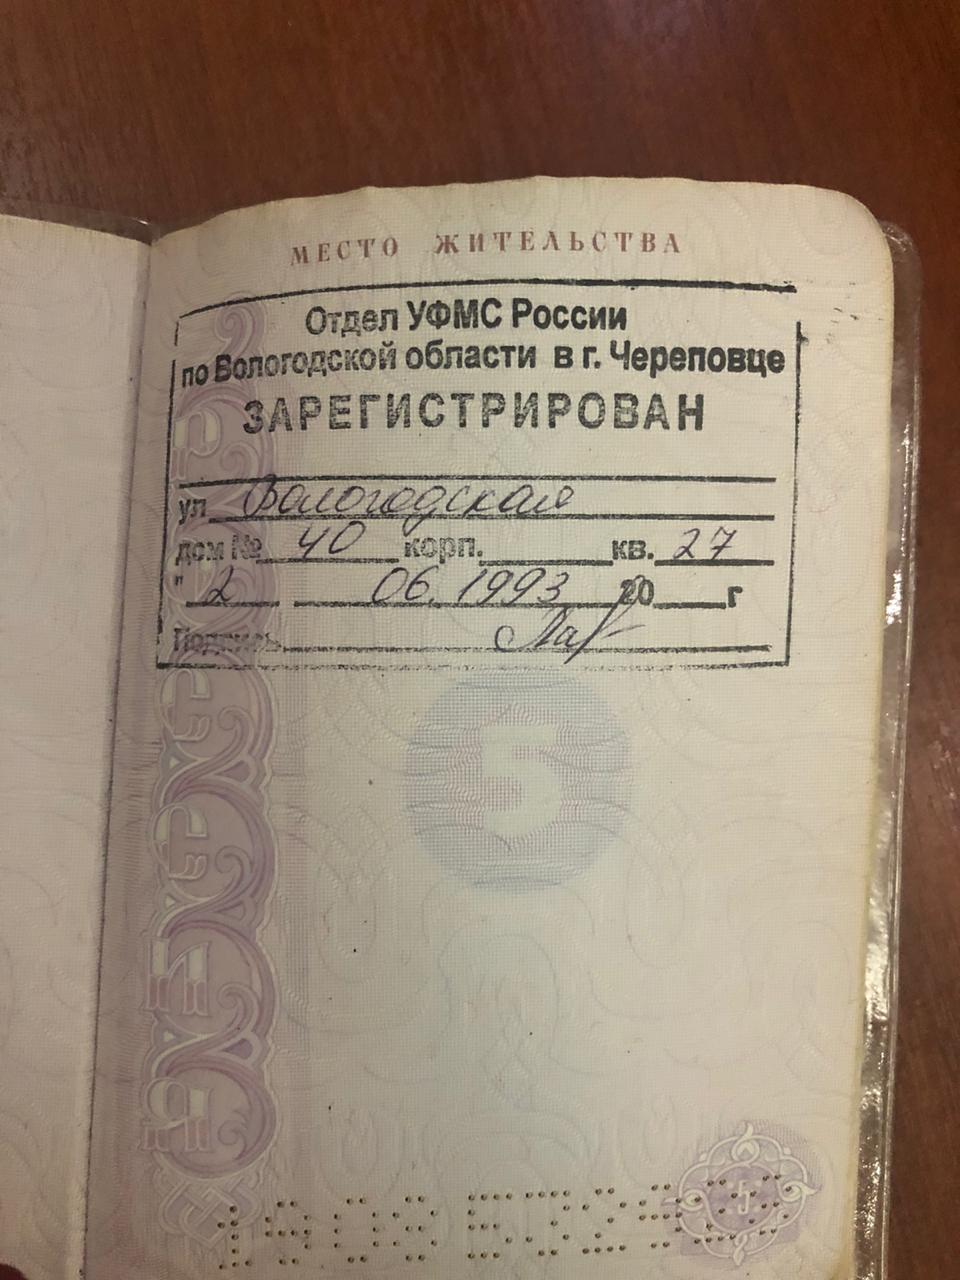 МЕСТО ЖИТЕЛЬСТВА
Отдел УФМС России
по Вологодской области в г. Череповце
ЗАРЕГИСТРИРОВАН
ул Вологодская
дом № 40 корп. кв. 27
" 2 06. 1993 20 г
Подпись
5
5